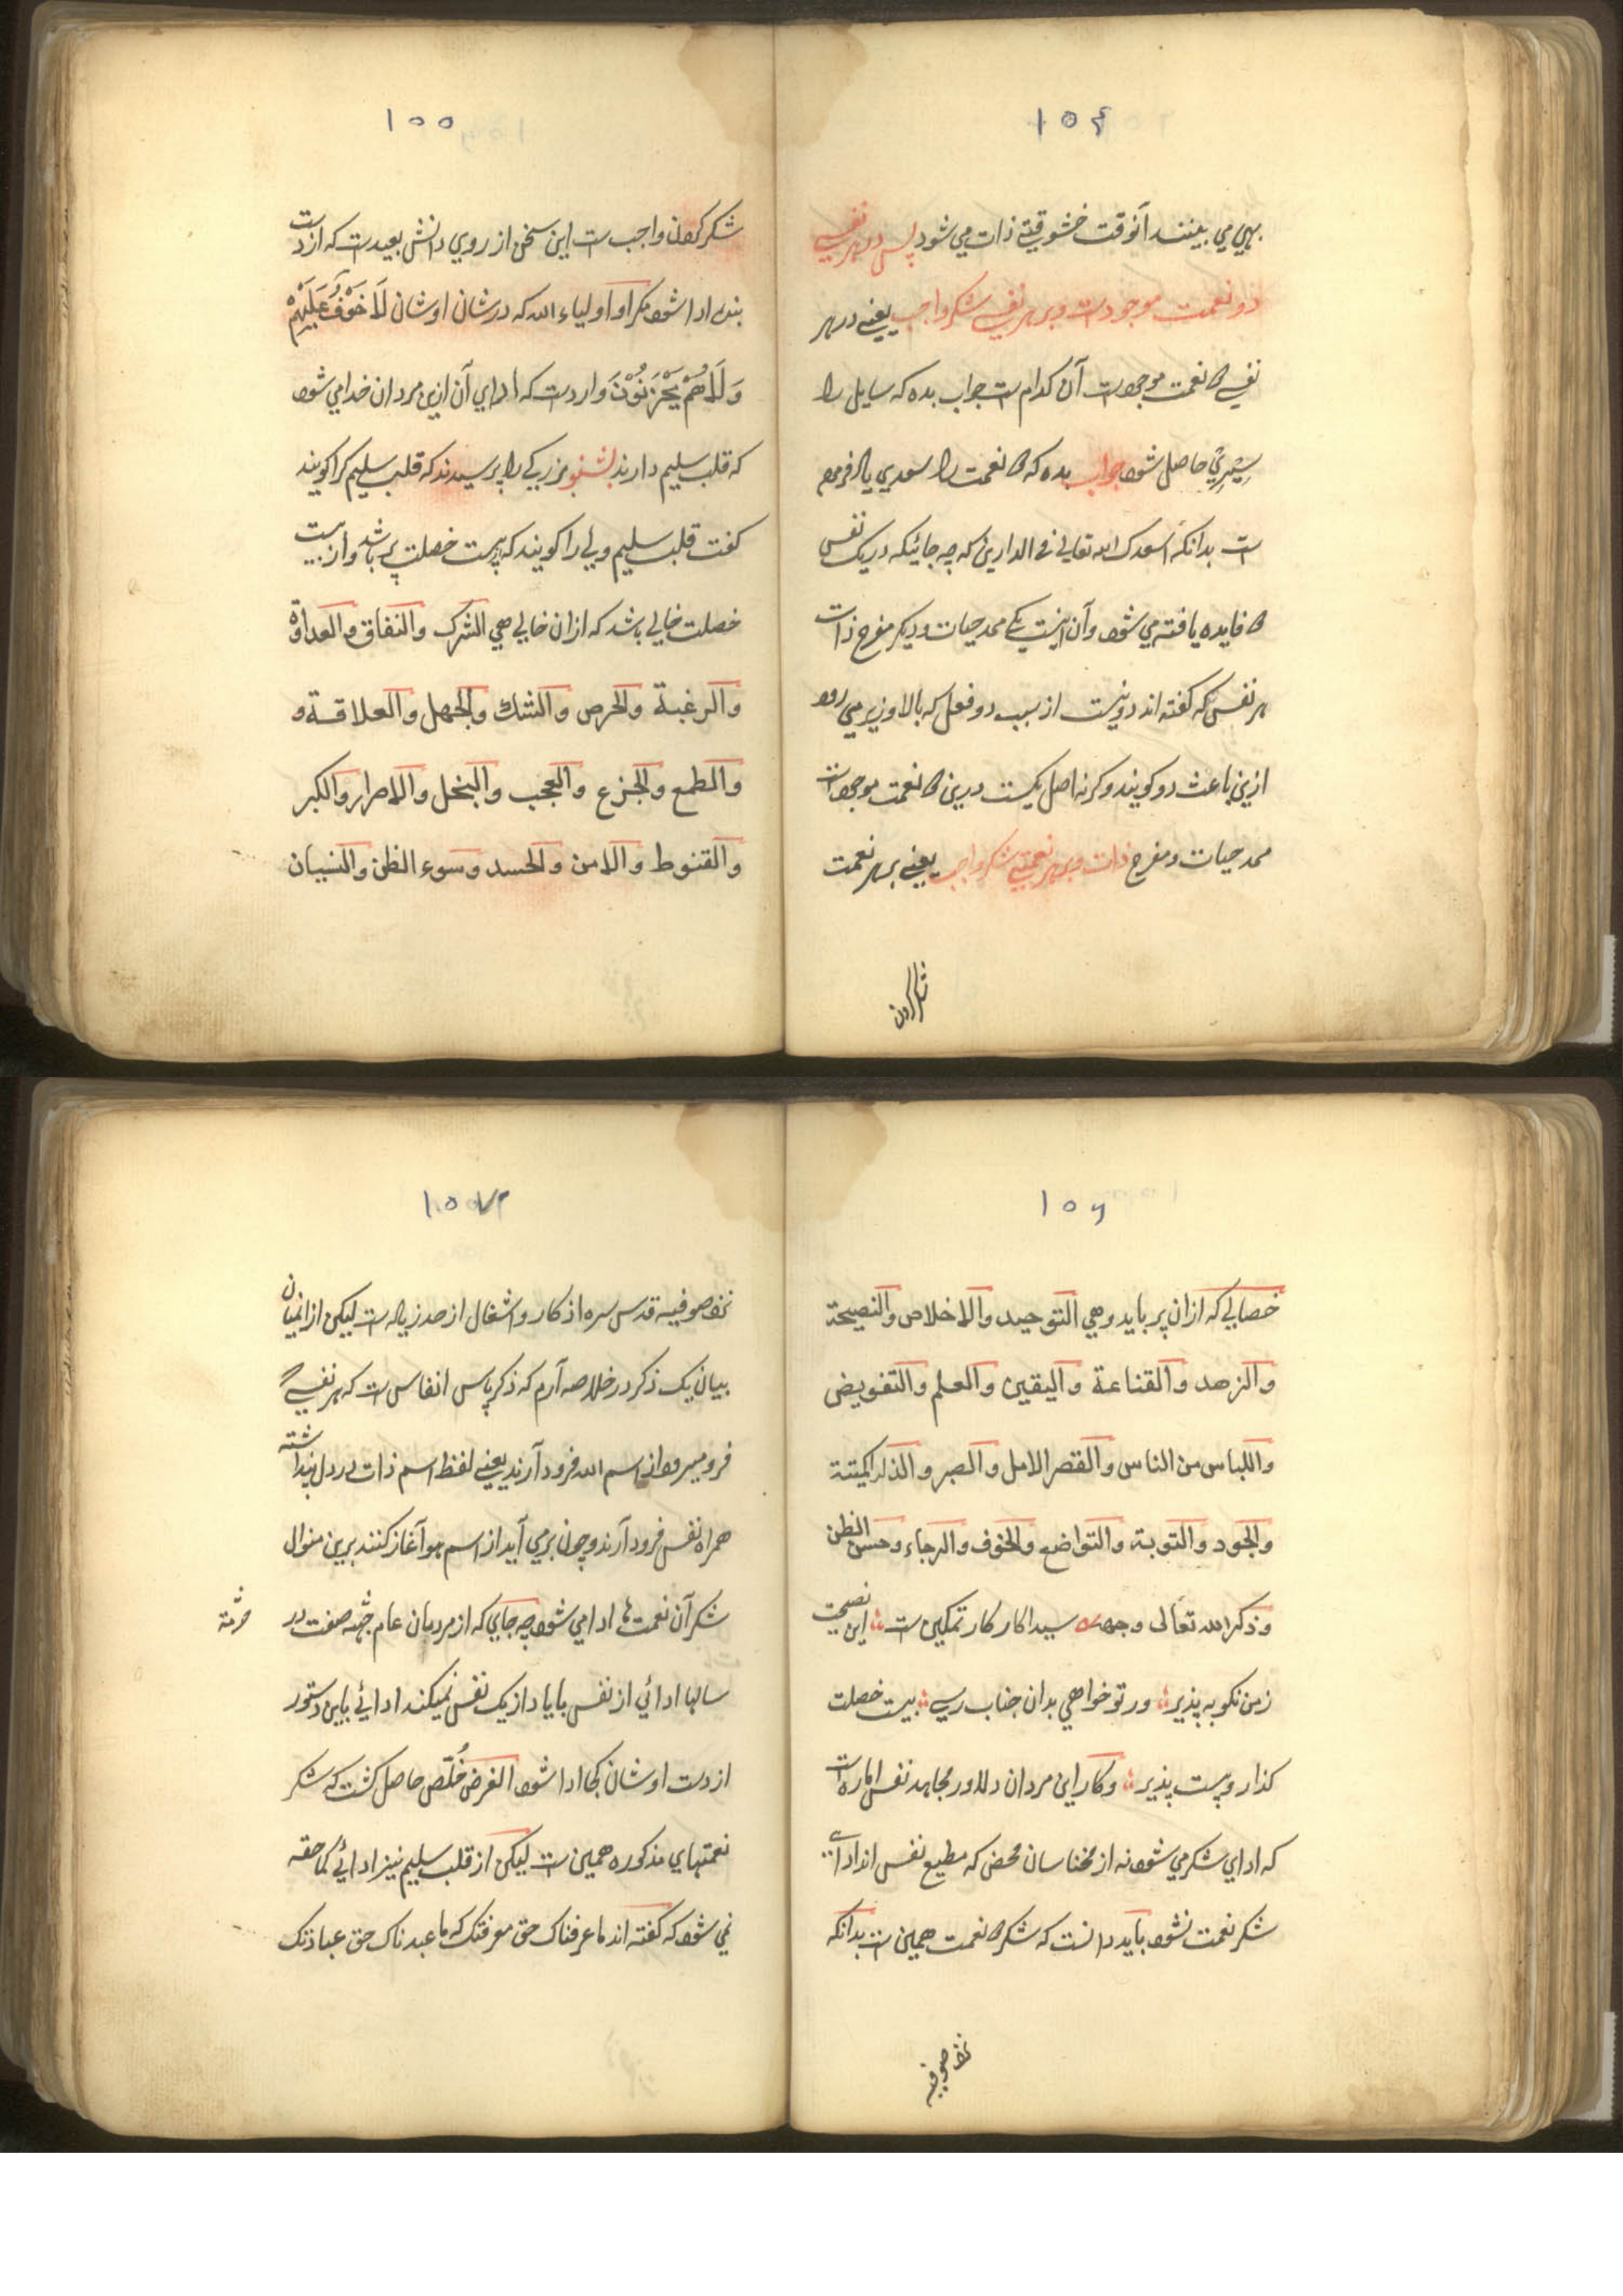 ۱۵۴
بهي مي بينند آنوقت خشوقتي ذات مي شود پس در هر نفسي
دو نعمت موجودست و بر هر نفسي شكر واجب يعني در هر
نفسي نعمت موجودست آن كدام ست جواب بده كه سايل را
حاصل شود جواب بده كه نعمت را سعدي ياد فرموده
ست بدانكه اسعدك الله تعالي في الدارين كه چه جائيكه در يك نفس
فايده يافته مي شود و آن اينست يكي ممد حيات و ديكر مفرح ذات
هر نفس كه كفته اند دو نيست از سبب دو فعل كه بالا و زير مي رود
ازين باعث دو كويند و كرنه اصل يكيست درين نعمت موجودست
ممد حيات و مفرح ذات و بر هر نعمتي شكر واجب يعني بر هر نعمت
شكر كردن
۱۵۵
شكر كردن واجب ست اين سخن از روي دانش بعيدست كه از دست
بنده ادا شود مكر او اولياء الله كه در شان اوشان لَا خَوْفٌ عَلَيْهِمْ
وَلَا هُمْ يَحْزَنُوْنَ واردست كه اداي آن ازين مردان خدا مي شود
كه قلب سليم دارند بشنو بزركي را پرسيدند كه قلب سليم كرا كويند
كفت قلب سليم ولي را كويند كه به بيست خصلت پر باشد و از بيست
خصلت خالي باشد كه ازان خالي هي الشرك والنفاق والعداوة
والرغبة والحرص والشك والجهل والعلاقة و
والطمع والجزع والعجب والبخل والاصرار والكبر
والقنوط والامن والحسد وسوء الظن والنسيان
۱۵۶
خصالي كه ازان پر بايد وهي التوحيد والاخلاص والنصيحة
والزهد والقناعة واليقين والعلم والتفويض
واللباس من الناس والقصر الامل والصبر والذلة
والجود والتوبة والتواضع والخوف والرجاء وحسن الظن
وذكر الله تعالى وجهه سيدا كار كار تمكين ست اين نصيحت
زمن نكو به پذير ور تو خواهي بدان جناب رسي بيست خصلت
كذار و بيست پذير و كار اين مردان دلاور مجاهد نفس اماره است
كه اداي شكر مي شود نه از مخناسان محض كه مطيع نفس اند
شكر نعمت نشود بايد دانست كه شكر نعمت همين ست بدانكه
نزد صوفيه
۱۵۷
نزد صوفيه قدس سره اذكار و اشغال از صد زياده ست ليكن ازانميان
بيان يك ذكر در خلاصه آرم كه ذكر پاس انفاس ست كه هر نفسي
فرو ميرود از اسم الله فرود آرند يعني لفظ اسم ذات در دل پنداشته
همراه نفس فرود آرند و چون بر مي آيد از اسم هو آغاز كنند برين منوال
شكر آن نعمت ها ادا مي شود چه جاي كه از مردمان عام صفت در
سالها ادائي از نفس بايا داز يك نفس نميكند ادائي باين دستور
از دست اوشان كجا ادا شود الغرض مُلَخّص حاصل كشت كه شكر
نعمتهاي مذكوره همين ست ليكن از قلب سليم نيز ادائي كما حقه
نمي شود كه كفته اند ما عرفناك حق معرفتك كه ما عبدناك حق عبادتك